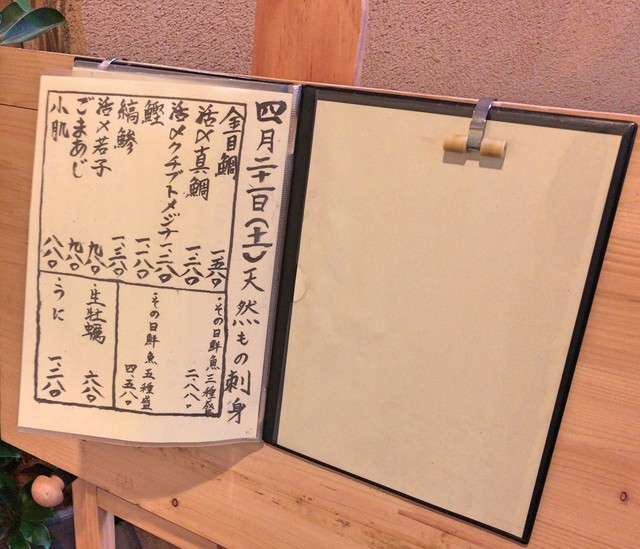 四月二十一日(土)天然もの刺身
金目鯛 一、五八〇
活〆真鯛 一、三八〇
活〆クチブトメジナ 一、二八〇
鰹 一、二八〇
縞鯵 一、三八〇
活〆若子 九八〇
ごまあじ 九八〇
小肌 八八〇
・その日鮮魚三種盛 二、八八〇
・その日鮮魚五種盛 四、五八〇
・生牡蠣 六八〇
・うに 一、三八〇